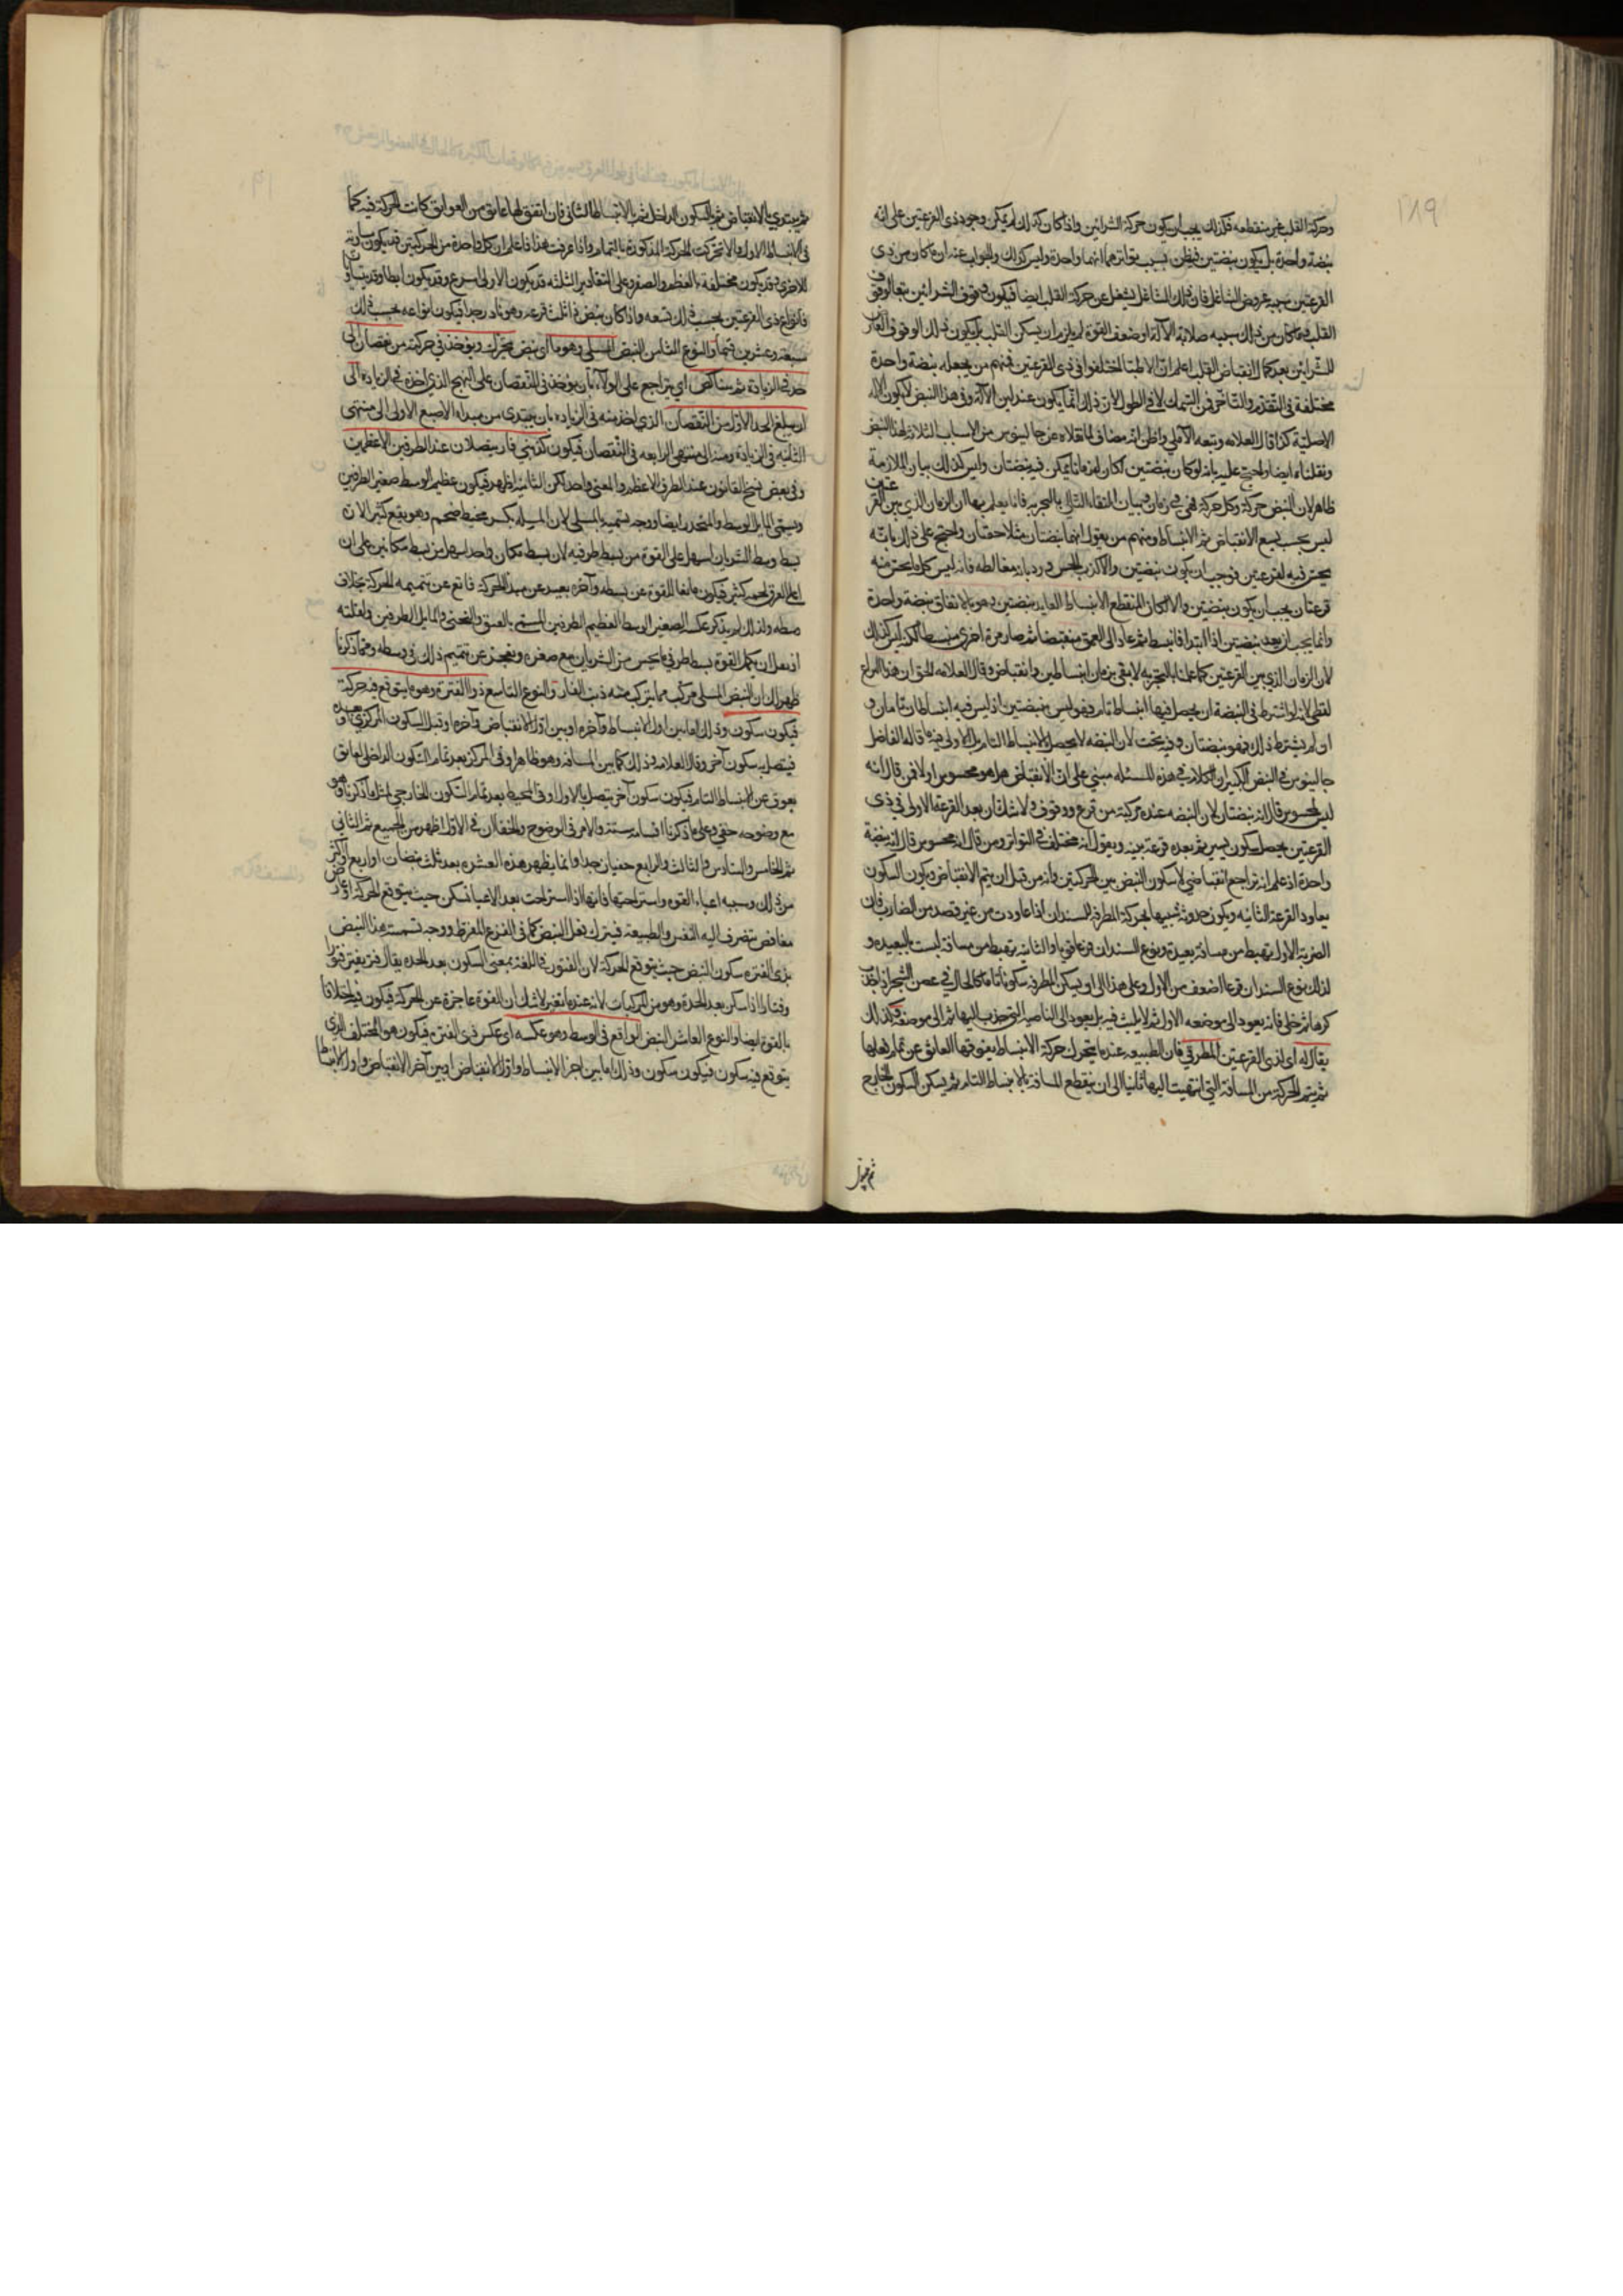 ٢٨٩
وحركة القلب غير منقطعه فكذلك يجب ان يكون حركة الشرائين واذا كان كذلك لم يمكن وجود ذى القرعتين على انه
نبضة واحدة بل يكون نبضتين فيظن بسبب تواترهما انهما واحدة وليس كذلك والجواب عنه ان ما كان من ذى
القرعتين سببه عروض الشاغل فان ذلك الشاغل يشغل عن حركة القلب ايضا فيكون وقوف الشرائين تبعا لوقوف
القلب وما كان من ذلك سببه صلابة الآلة او ضعف القوة لم يلزم ان يسكن القلب بل يكون ذلك الوقوف العارض
للشرائين بعد كمال انقباض القلب اعلم ان الاطبا اختلفوا فى ذى القرعتين فمنهم من يجعله نبضة واحدة
مختلفة فى التقدم والتاخر فى السمك لا فى الطول لان ذلك انما يكون عند لين الآلة وفى هذا النبض لا يكون الآلة
كذا قال العلامه وتبعه الآملي واظن انه مضاف لما نقلاه عن جالينوس من الاسباب الثلاثة لهذا النبض
ونقلناه ايضا واحتج عليه بانه لو كان نبضتين لكان لهما زمانا يمكن فيه نبضتان وليس كذلك بيان الملازمة
ظاهر لان النبض حركة وكل حركة فهى فى زمان وبيان انتفاء التالى بالتجربه فانا نعلم بها ان الزمان الذى بين القرعتين
ليس بحيث يسع الانقباض ثم الانبساط ومنهم من يقول انهما نبضتان متلاحقتان واحتج على ذلك بانه
يحس فيه لقرعتين فوجب ان يكون نبضتين والا لكذب الحس ورد بانه مغالطه فانه ليس كل ما يحس منه
قرعتان يجب ان يكون نبضتين والا لكان المنقطع الانبساط العايد نبضتين وهو بالاتفاق نبضة واحدة
وانما يجب ان يعد نبضتين اذا ابتدا فانبسط ثم عاد الى العمق منقبضا ثم صار مرة اخرى منبسطا لكن ليس كذلك
لان الزمان الذى بين القرعتين كما علمنا بالتجربه لا يفى بزمان انبساطين وانقباض وقال العلامه الحق ان هذا النزاع
لفظى لانه لو اشترط فى النبضة ان يحصل فيها انبساط تام فهو ليس نبضتين اذ ليس فيه انبساطان تامان و
ان لم يشترط ذلك فهو نبضتان وفيه بحث لان النبضه لا يحصل الانبساط التام بل الاولى فيه ما قاله الفاضل
جالينوس فى النبض الكبير ان الكلام فى هذه المسئله مبنى على ان الانقباض هل هو محسوس او لا فمن قال انه
ليس بمحسوس قال انه نبضتان لان النبضه عنده مركبة من قرع ووقوف ولا شك ان بعد القرعة الاولى فى ذى
القرعتين يحصل سكون يسير ثم بعده قرعة بينه ويقول انه مختلف فى التواتر ومن قال انه محسوس قال انه نبضة
واحدة اذ علم انه تراجع انقباضى لا سكون النبض بين الحركتين وانه من قبل ان يتم الانقباض ويكون السكون
يعاود القرعة الثانيه ويكون حدوثه شبيها بحركة المطرقة للسندان اذا عاودت من غير قصد من الضارب فان
الضربة الاولى تهبط من مسافة بعيدة ويقع السندان قرعا قويا والثانيه يهبط من مسافة ليست بالبعيده و
لذلك يقرع السندان قرعا اضعف من الاول وعلى هذا الى ان يسكن المطرقه سكونا تاما كالحال فى غصن الشجر اذا جذب
كرها ثم خلى فانه يعود الى موضعه الاول ثم لا يلبث فيه بل يعود الى الناحية التى جذب اليها ثم الى موضعه فكذلك
يقال له اى لذى القرعتين المطرقى فان الطبيعه عند ما يتحرك حركة الانبساط يعوقها العائق عن تمام فعلها
ثم يتم الحركة من المسافة التى انتهيت اليها ثانيا الى ان ينقطع المسافة بالانبساط التام ثم يسكن السكون الخارج
ثم يبتدى بالانقباض ثم السكون الداخل ثم الانبساط الثانى فان اتفق لها عايق من العوايق كانت الحركة فيه كما
فى الانبساط الاول والا تحركت الحركة المذكورة بالتمام واذا عرفت هذا فاعلم ان كل واحدة من الحركتين قد يكون مساوية
للاخرى وقد يكون مختلفة بالعظم والصغر وعلى التقادير الثلثه قد يكون الاولى اسرع وقد يكون ابطا وقد يتساوى
فانواع ذى القرعتين بحسب ذلك تسعه واذا كان نبض ذا ثلث قرعه وهو نادر جدا فيكون انواعه بحسب ذلك
سبعة وعشرين قسما والنوع الثامن النبض المسلى وهو ما اى نبض يتحرك ويوخذ فى حركته من نقصان الى
حد فى الزيادة ثم يتناكس اى يتراجع على الولاء بان يوخذ فى النقصان على النهج الذى اخذه فى الزيادة الى
ان يبلغ الحد الاول من النقصان الذى اخذ منه فى الزياده بان يبتدى من مبداء الاصبع الاولى الى منتهى
الثانيه فى الزيادة ومنه الى منتهى الرابعه فى النقصان فيكون كذنبى فار يتصلان عند الطرفين الاعظمين
وفى بعض نسخ القانون عند الطرف الاعظم والمعنى واحد لكن الثانية اظهر فيكون عظيم الوسط صغير الطرفين
ويسمى المايل الوسط والمنحدر ايضا ووجه تسميته بالمسلى لان المسله بكسر مخيط ضخم وهو يقع كثيرا لان
بسط وسط الشريان اسهل على القوة من بسط طرفيه لان بسط مكان واحد اسهل من بسط مكانين على ان
اعلى العرق لحمه كثير فيكون مانعا للقوة عن بسطه وآخره بعيد عن مبدا الحركة فامتنع عن تتميمه للحركة بخلاف
وسطه ولذلك لم يذكر عكسه الصغير الوسط العظيم الطرفين المسمى بالعميق والمنحنى والمايل الطرفين ولقلته
اذ يقل ان يكمل القوة بسط طرفى ما يحس من الشريان مع صغره ويعجز عن تتميم ذلك فى وسطه ومما ذكرنا
ظهر لك ان النبض المسلى مركب مما يتركب منه ذنب الفار والنوع التاسع ذو الفتره وهو ما يتوقع فيه حركة
فيكون سكون وذلك اما بين اول الانبساط وآخره او بين اول الانقباض وآخره او قبل السكون المركزى او بعده
فيتصل به سكون آخر وقال العلامه وذلك كما بين المسافه وهو ظاهر او فى المركز بعد تمام السكون الداخل لعايق
يعوق عن الانبساط التام فيكون سكون آخر يتصل بالاول او فى المحيط بعد تمام السكون الخارجى لمثل ما ذكرنا وهو
مع وضوحه خفى وعلى ما ذكرنا اقسامه ستة والامر فى الوضوح والخفاء ان الاول اظهر من الجميع ثم الثانى
ثم الخامس والسادس والثالث والرابع خفيان جدا وانما يظهر هذه العشره بعد ثلث نبضات او اربع او اكثر
من ذلك وسببه اعياء القوه واستراحتها فانها اذا استراحت بعد الاعيا تسكن حيث يتوقع الحركة او عارض
مغافص يتصرف اليه النفس والطبيعة فيترك فعل النبض كما فى الفزع المفرط ووجه تسمية هذا النبض
بذى الفتره سكون النبض حيث يتوقع الحركة لان الفتور فى اللغة بمعنى السكون بعد الحده يقال فتر يفتر فتورا
وفتارا اذا سكن بعد الحدة وهو من المركبات لانه عنده اتفتر لا شك ان القوة عاجزة عن الحركة فيكون فيه اختلافا
بالقوة ايضا والنوع العاشر النبض الواقع فى الوسط وهو عكسه اى عكس ذى الفتره فيكون هو المختلف الذى
يتوقع فيه سكون فيكون سكون وذلك اما بين اخر الانبساط واول الانقباض او بين آخر الانقباض واول الانبساط